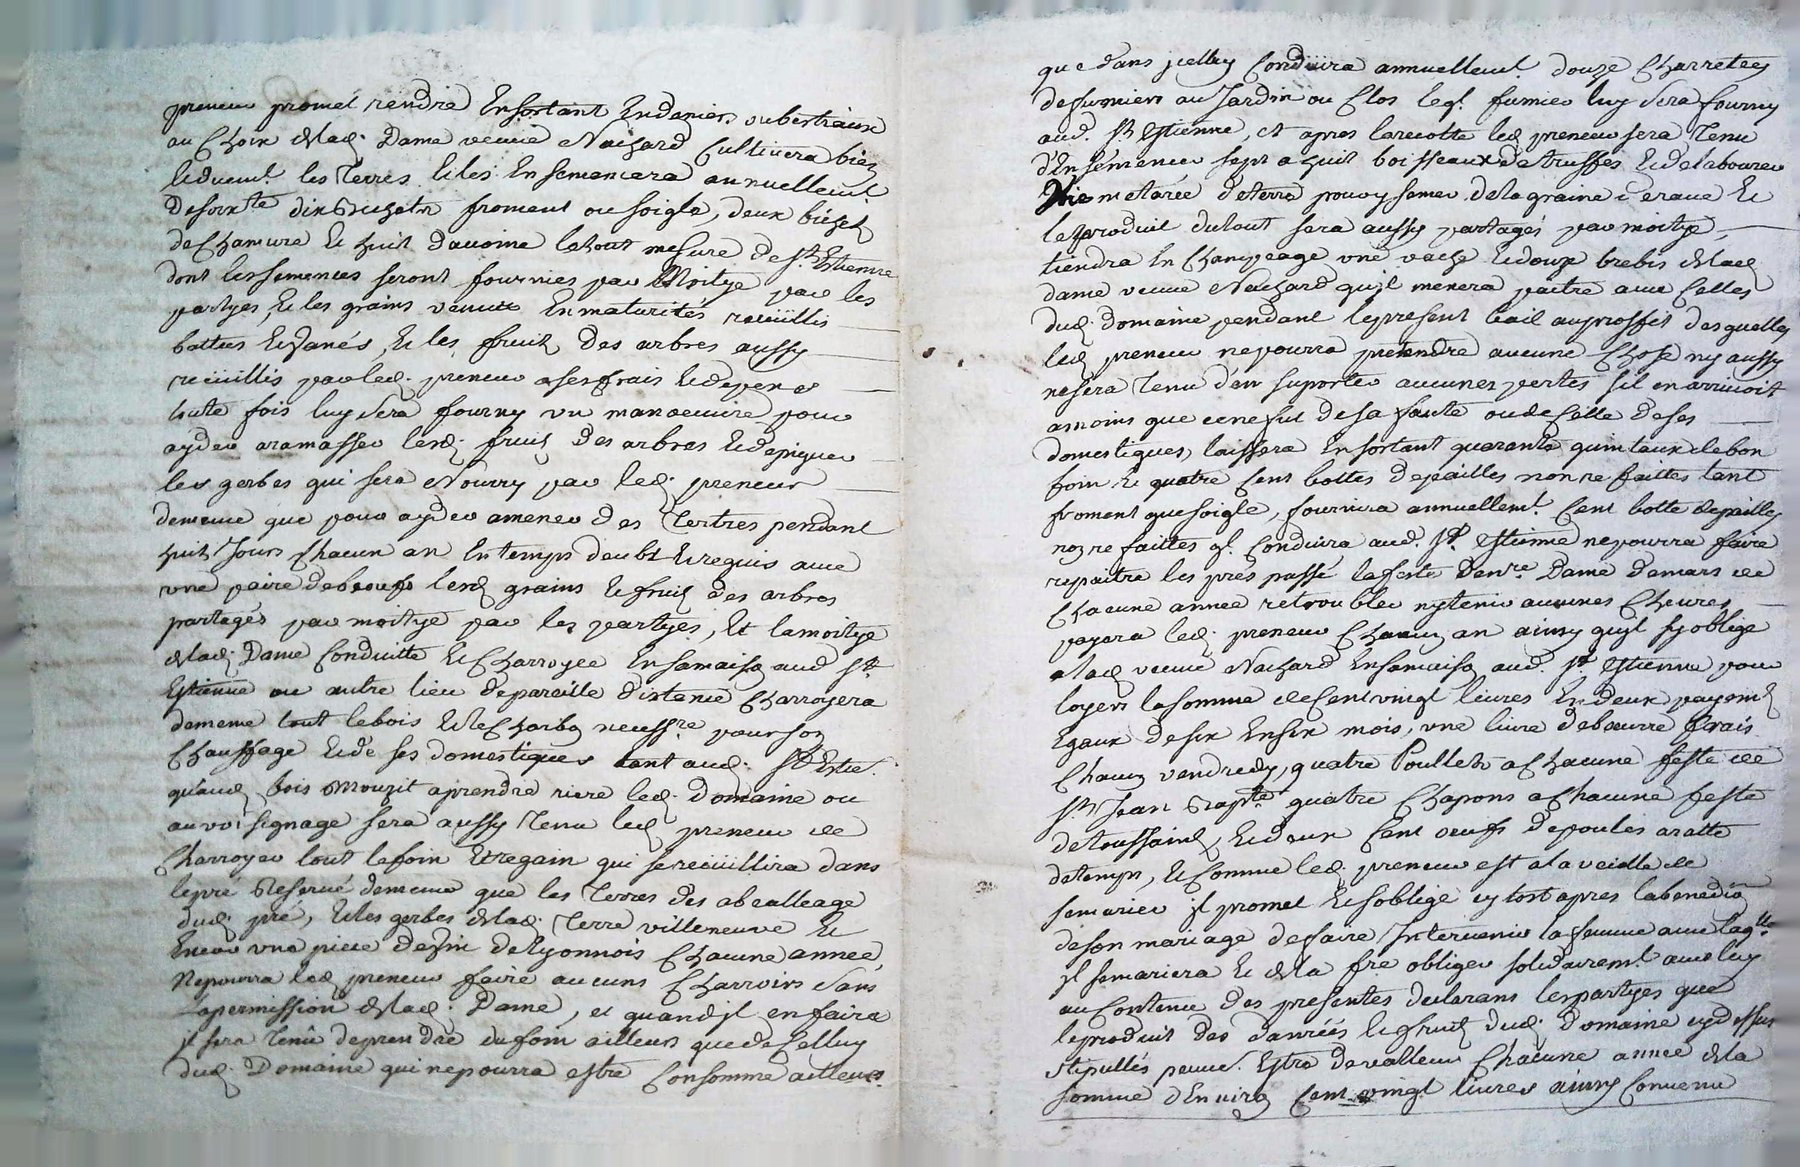 preneur promet rendre En sortant En deniers ou bestiaux
au Choix de lad. Dame veuve Nachard Cultivera bien
Et duem.t les Terres Et les Ensemencera annuellem.t
de soix.te dix bichets froment ou soigle, deux bichets
de Chanvre Et huit d'avoine le tout mesure de S.t Etienne
dont les semences seront fournies par Moitye par les
partyes, Et les grains venus En maturités recüillis
battus Et vanés, Et les fruits des arbres aussy
recüillis par led. preneur a ses frais Et depens
toute fois luy sera fourny un manoeuvre pour
ayder a ramasser lesd. fruits des arbres Et depiquer
les gerbes qui sera Nourry par led. preneur
de meme que pour ayder amener des Tertres pendant
huit Jours Chacun an En temps deubt Et requis avec
une paire de boeufs lesd. grains Et fruits des arbres
partagés par moitye par les partyes, Et la moitye
de lad. Dame Conduitte Et Charroyée En sa maison aud. S.t
Etienne ou autre lieu de pareille distance Charroyera
de meme tout le bois Et le Charbon necess.re pour son
Chauffage Et de ses domestiques tant aud. S.t Etie.
qu'aud. bois Mouzit a prendre riere led. domaine ou
au voisignage sera aussy Tenu led. preneur de
Charroyer tout le foin Et regain qui se recüillira dans
le pré Reservé de meme que les Terres des abealleage
dud. pré, Et les gerbes de lad. Terre villeneuve Et
Encor une piece de vin de Lyonnois Chacune année,
Ne pourra led. preneur faire aucuns Charrois sans
la permission de lad. Dame, et quand il en faira
il sera Tenû de prendre du foin ailleurs que de Celluy
dud. Domaine qui ne pourra estre Consommé ailleurs
que dans jcelluy Conduira annuellem.t douze Charretées
de fumiers au Jardin ou Clos leql. fumier luy sera fourny
aud. S.t Etienne, et apres la recolte led. preneur sera Tenu
d'Ensemencer sept a huit boisseaux de truffes Et de labourer
Une metarée de terre pour y semer de la graine de rave Et
le produit du tout sera aussy partagés par moitye
tiendra En Champeage une vache Et douze brebis de lad.
dame veuve Nachard qu'il menera paitre avec Celles
dud. domaine pendant le present bail au proffit desquelles
led. preneur ne pourra pretendre aucune Chose ny aussy
ne sera Tenu d'en suporter aucunes pertes s'il en arrivoit
a moins que ce ne fut de sa faute ou de Celle de ses
domestiques, laissera En sortant quarante quintaux de bon
foin Et quatre Cent bottes de pailles non refaittes tant
froment que soigle, fournira annuellem.t Cent botte de pailles
non refaittes ql. Conduira aud. S.t Etienne ne pourra faire
repaitre les prés passé la feste de n.re Dame de mars de
Chacune année retroubler ny tenir aucunes Chevres
payera led. preneur Chacun an ainsy qu'il s'y oblige
a lad. veuve Nachard En sa maison aud. S.t Etienne pour
loyers la somme de Cent vingt livres En deux payem.ts
Egaux de six En six mois, une livre de beurre frais
Chacun vendredy, quatre Poullets a Chacune feste de
S.t Jean Bap.te quatre Chapons a Chacune feste
de Toussaints, Et deux Cent oeufs de poules a ratte
de temps, Et Comme led. preneur est a la veille de
se marier jl promet Et s'oblige sy tost apres la benedion
de son mariage de faire Intervenir la femme avec laq.lle
jl se mariera Et de la fre obliger solidairem.t avec luy
au Contenu des presentes declarans les partyes que
le produit des danrées Et fruits dud. domaine cy dessus
stipullés peuv.t Estre de valleur Chacune année de la
somme d'Environ Cent vingt livres ainsy Convenu